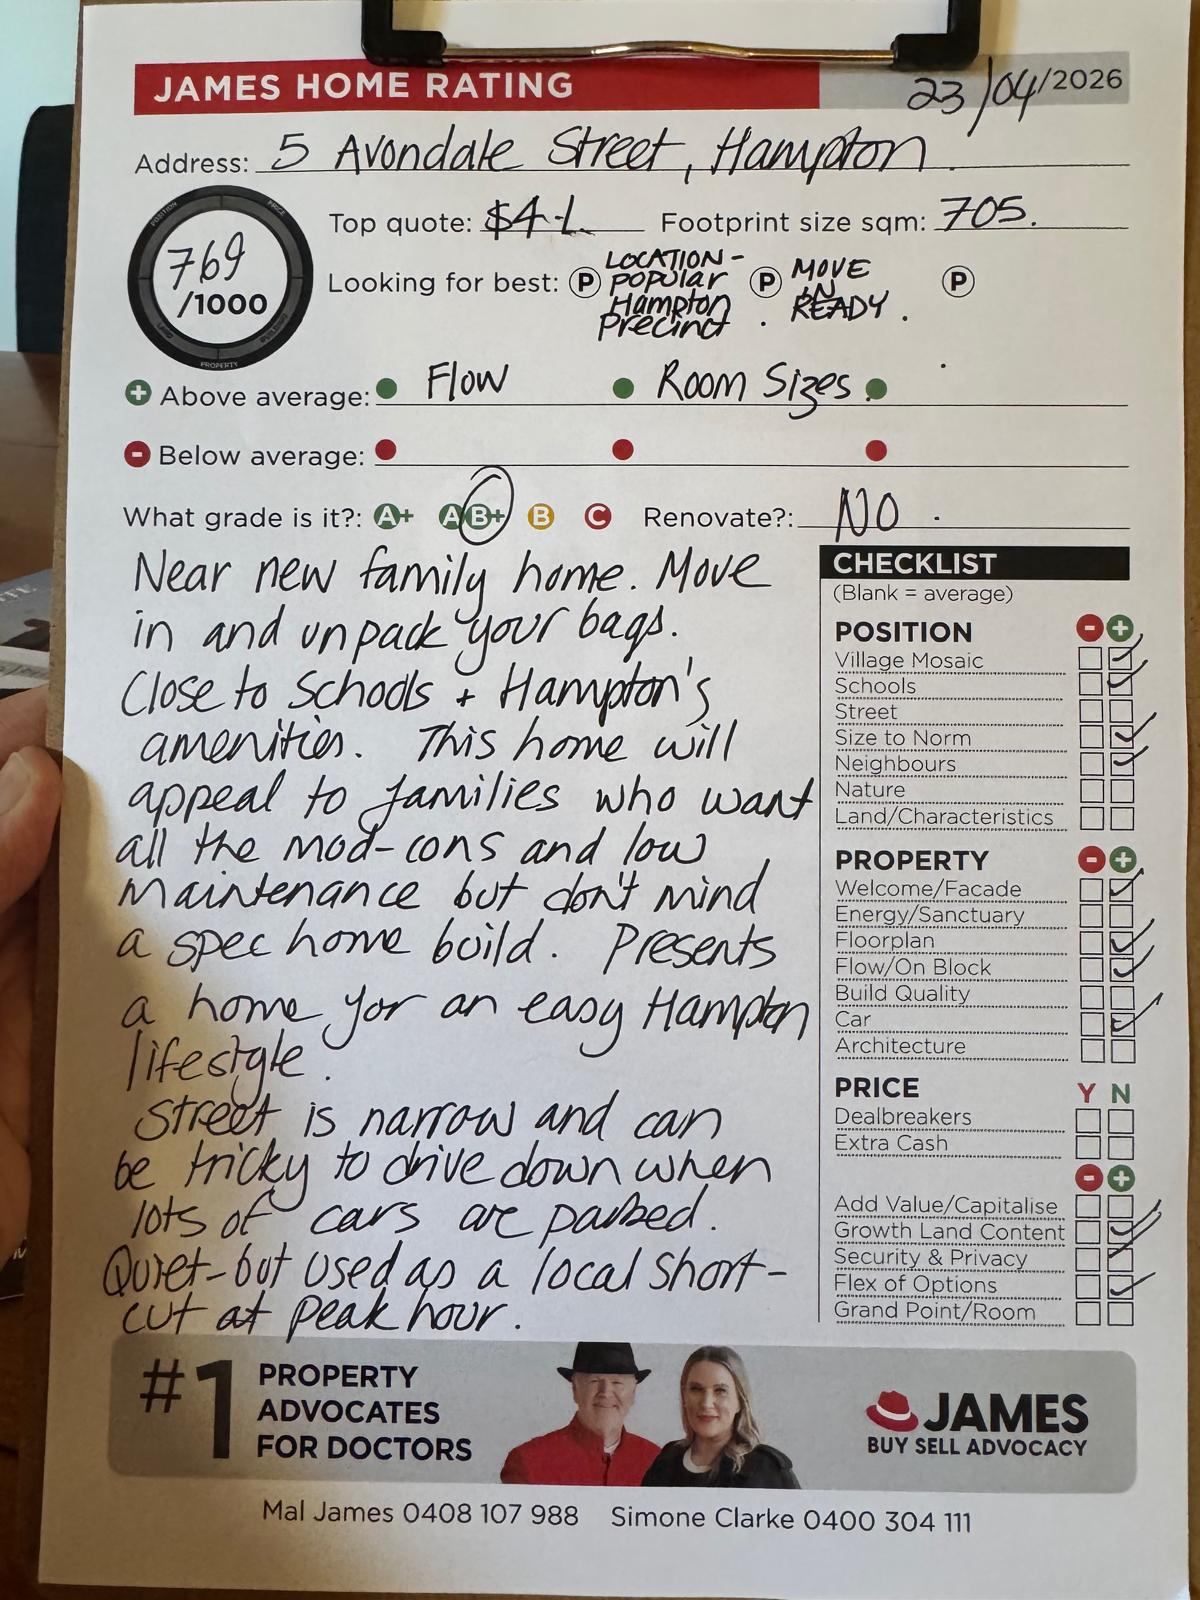 JAMES HOME RATING 23/04/2026
Address: 5 Avondale Street, Hampton.
POSITION PRICE
769
/1000
PROPERTY
Top quote: Footprint size sqm: 705.
Looking for best: P LOCATION - popular Hampton Precinct. P MOVE IN READY. P
+ Above average: Flow Room Sizes.
- Below average:
What grade is it?: A+ A B+ B C Renovate?: NO.
Near new family home. Move
in and unpack your bags.
Close to Schools + Hampton's
amenities. This home will
appeal to families who want
all the mod-cons and low
maintenance but don't mind
a spec home build. Presents
a home for an easy Hampton
lifestyle.
Street is narrow and can
be tricky to drive down when
lots of cars are parked.
Quiet-but used as a local short-
cut at peak hour.
CHECKLIST
(Blank = average)
POSITION - +
Village Mosaic
Schools
Street
Size to Norm
Neighbours
Nature
Land/Characteristics
PROPERTY - +
Welcome/Facade
Energy/Sanctuary
Floorplan
Flow/On Block
Build Quality
Car
Architecture
PRICE Y N
Dealbreakers
Extra Cash
- +
Add Value/Capitalise
Growth Land Content
Security & Privacy
Flex of Options
Grand Point/Room
#1 PROPERTY
ADVOCATES
FOR DOCTORS
JAMES
BUY SELL ADVOCACY
Mal James 0408 107 988 Simone Clarke 0400 304 111